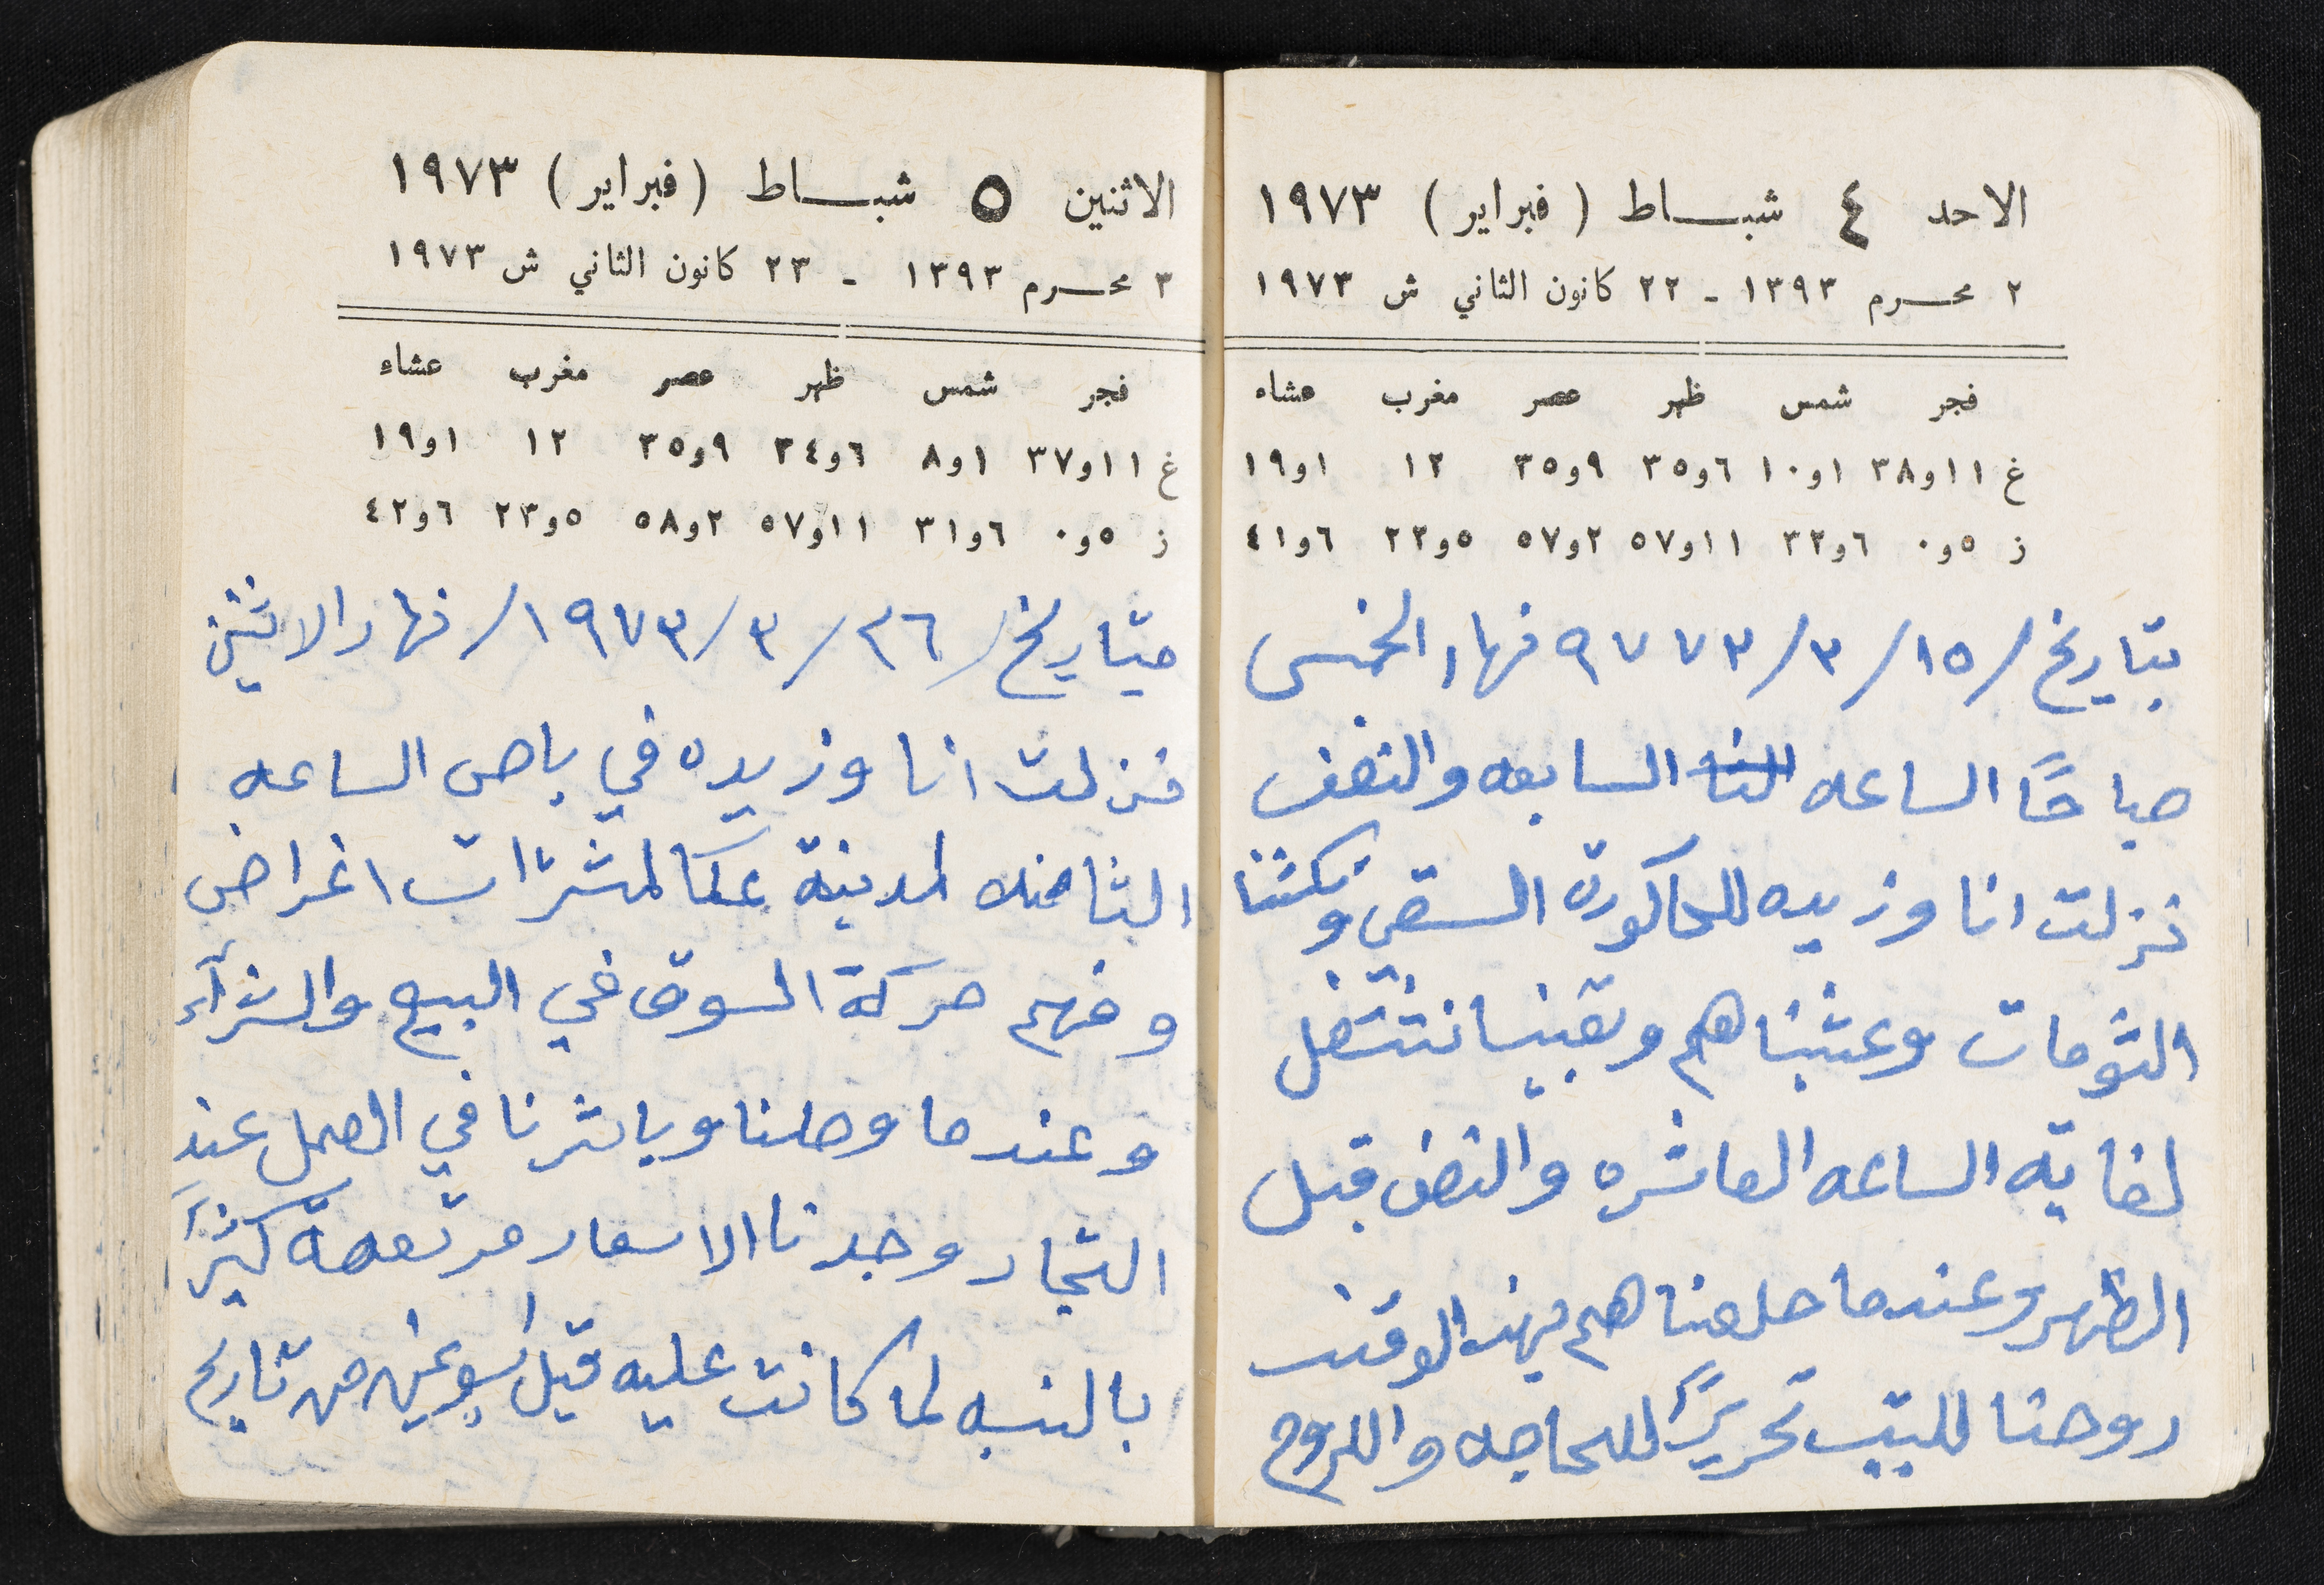 الاحد ٤ شبـــاط (فبراير) ١٩٧٣
٢ محـــرم ١٣٩٣ - ٢٢ كانون الثاني ش ١٩٧٣
فجر شمس ظهر عصر مغرب عشاء
غ ١١و٣٨ ١و١٠ ٦و٣٥ ٩و٣٥ ١٢ ١و١٩
ز ٥و٠ ٦و٣٢ ١١و٥٧ ٢و٥٧ ٥و٢٢ ٦و٤١
بتاريخ/١٥/٣/٩٧٧٣ نهار الخمس
صباحًا الساعه السابعه والنصف
نزلت انا وزيده للحاكورة السقي ونكشنا
الثومات وعشبناهم وبقينا نشتغل
لغاية الساعه العاشره والنصف قبل
الظهر وعندما خلصناهم بهذ الوقت
روحنا للبيت تحريرًا للحاجه واللزوم
الاثنين ٥ شبـــاط (فبراير) ١٩٧٣
٣ محـــرم ١٣٩٣ - ٢٣ كانون الثاني ش ١٩٧٣
فجر شمس ظهر عصر مغرب عشاء
غ ١١و٣٧ ١و٨ ٦و٣٤ ٩و٣٥ ١٢ ١و١٩
ز ٥و٠ ٦و٣١ ١١و٥٧ ٢و٥٨ ٥و٢٣ ٦و٤٢
بتاريخ/٢٦/٣/١٩٧٣/نهار الاثنين
نزلت انا وزيده في باص الساعه
الثامنه لمدينة عكا لمشترات اغراض
وفهم حركة السوق في البيع والشرآء
وعندما وصلنا وباشرنا في العمل عند
التجار وجدنا الاسعار مرتفعة كثيرًا
بالنسبه لما كانت عليه قبل اسبوعين من تاريخ